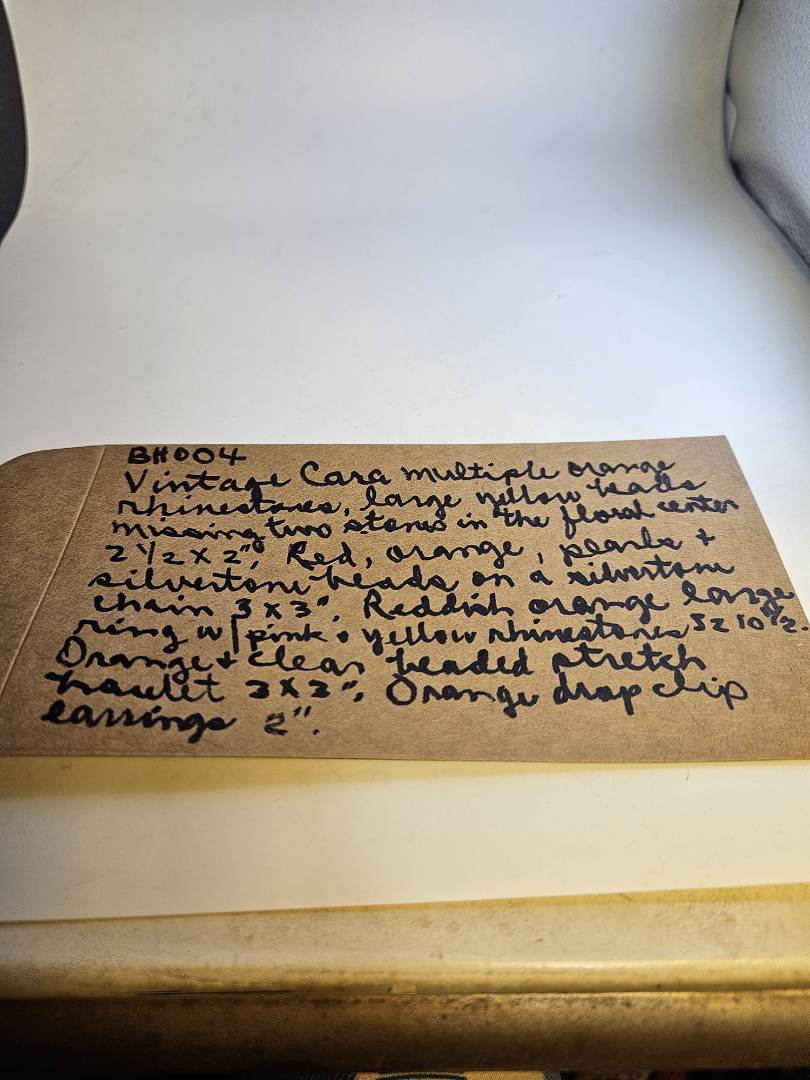 BH004
Vintage Cara multiple orange
rhinestones, large yellow beads
missing two stones in the floral center
2 1/2 x 2". Red, orange, pearls +
silvertone beads on a silvertone
chain 3 x 3". Reddish orange large
ring w/ pink + yellow rhinestones sz 10 1/2.
Orange + clear beaded stretch
bracelet 3 x 3". Orange drop clip
earrings 2".